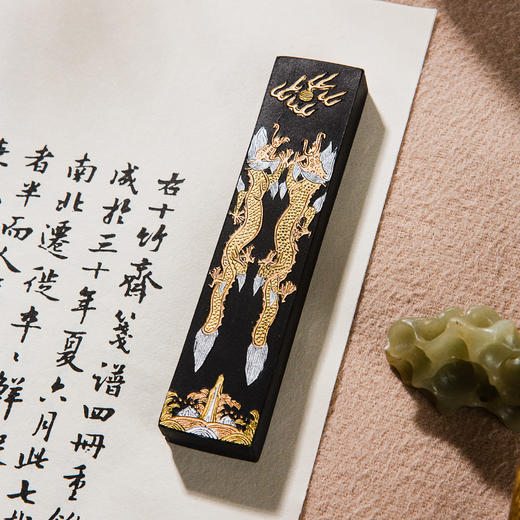 右十竹齋箋譜四冊重
成於三十年夏六月此七
南北遷徙率
者半而